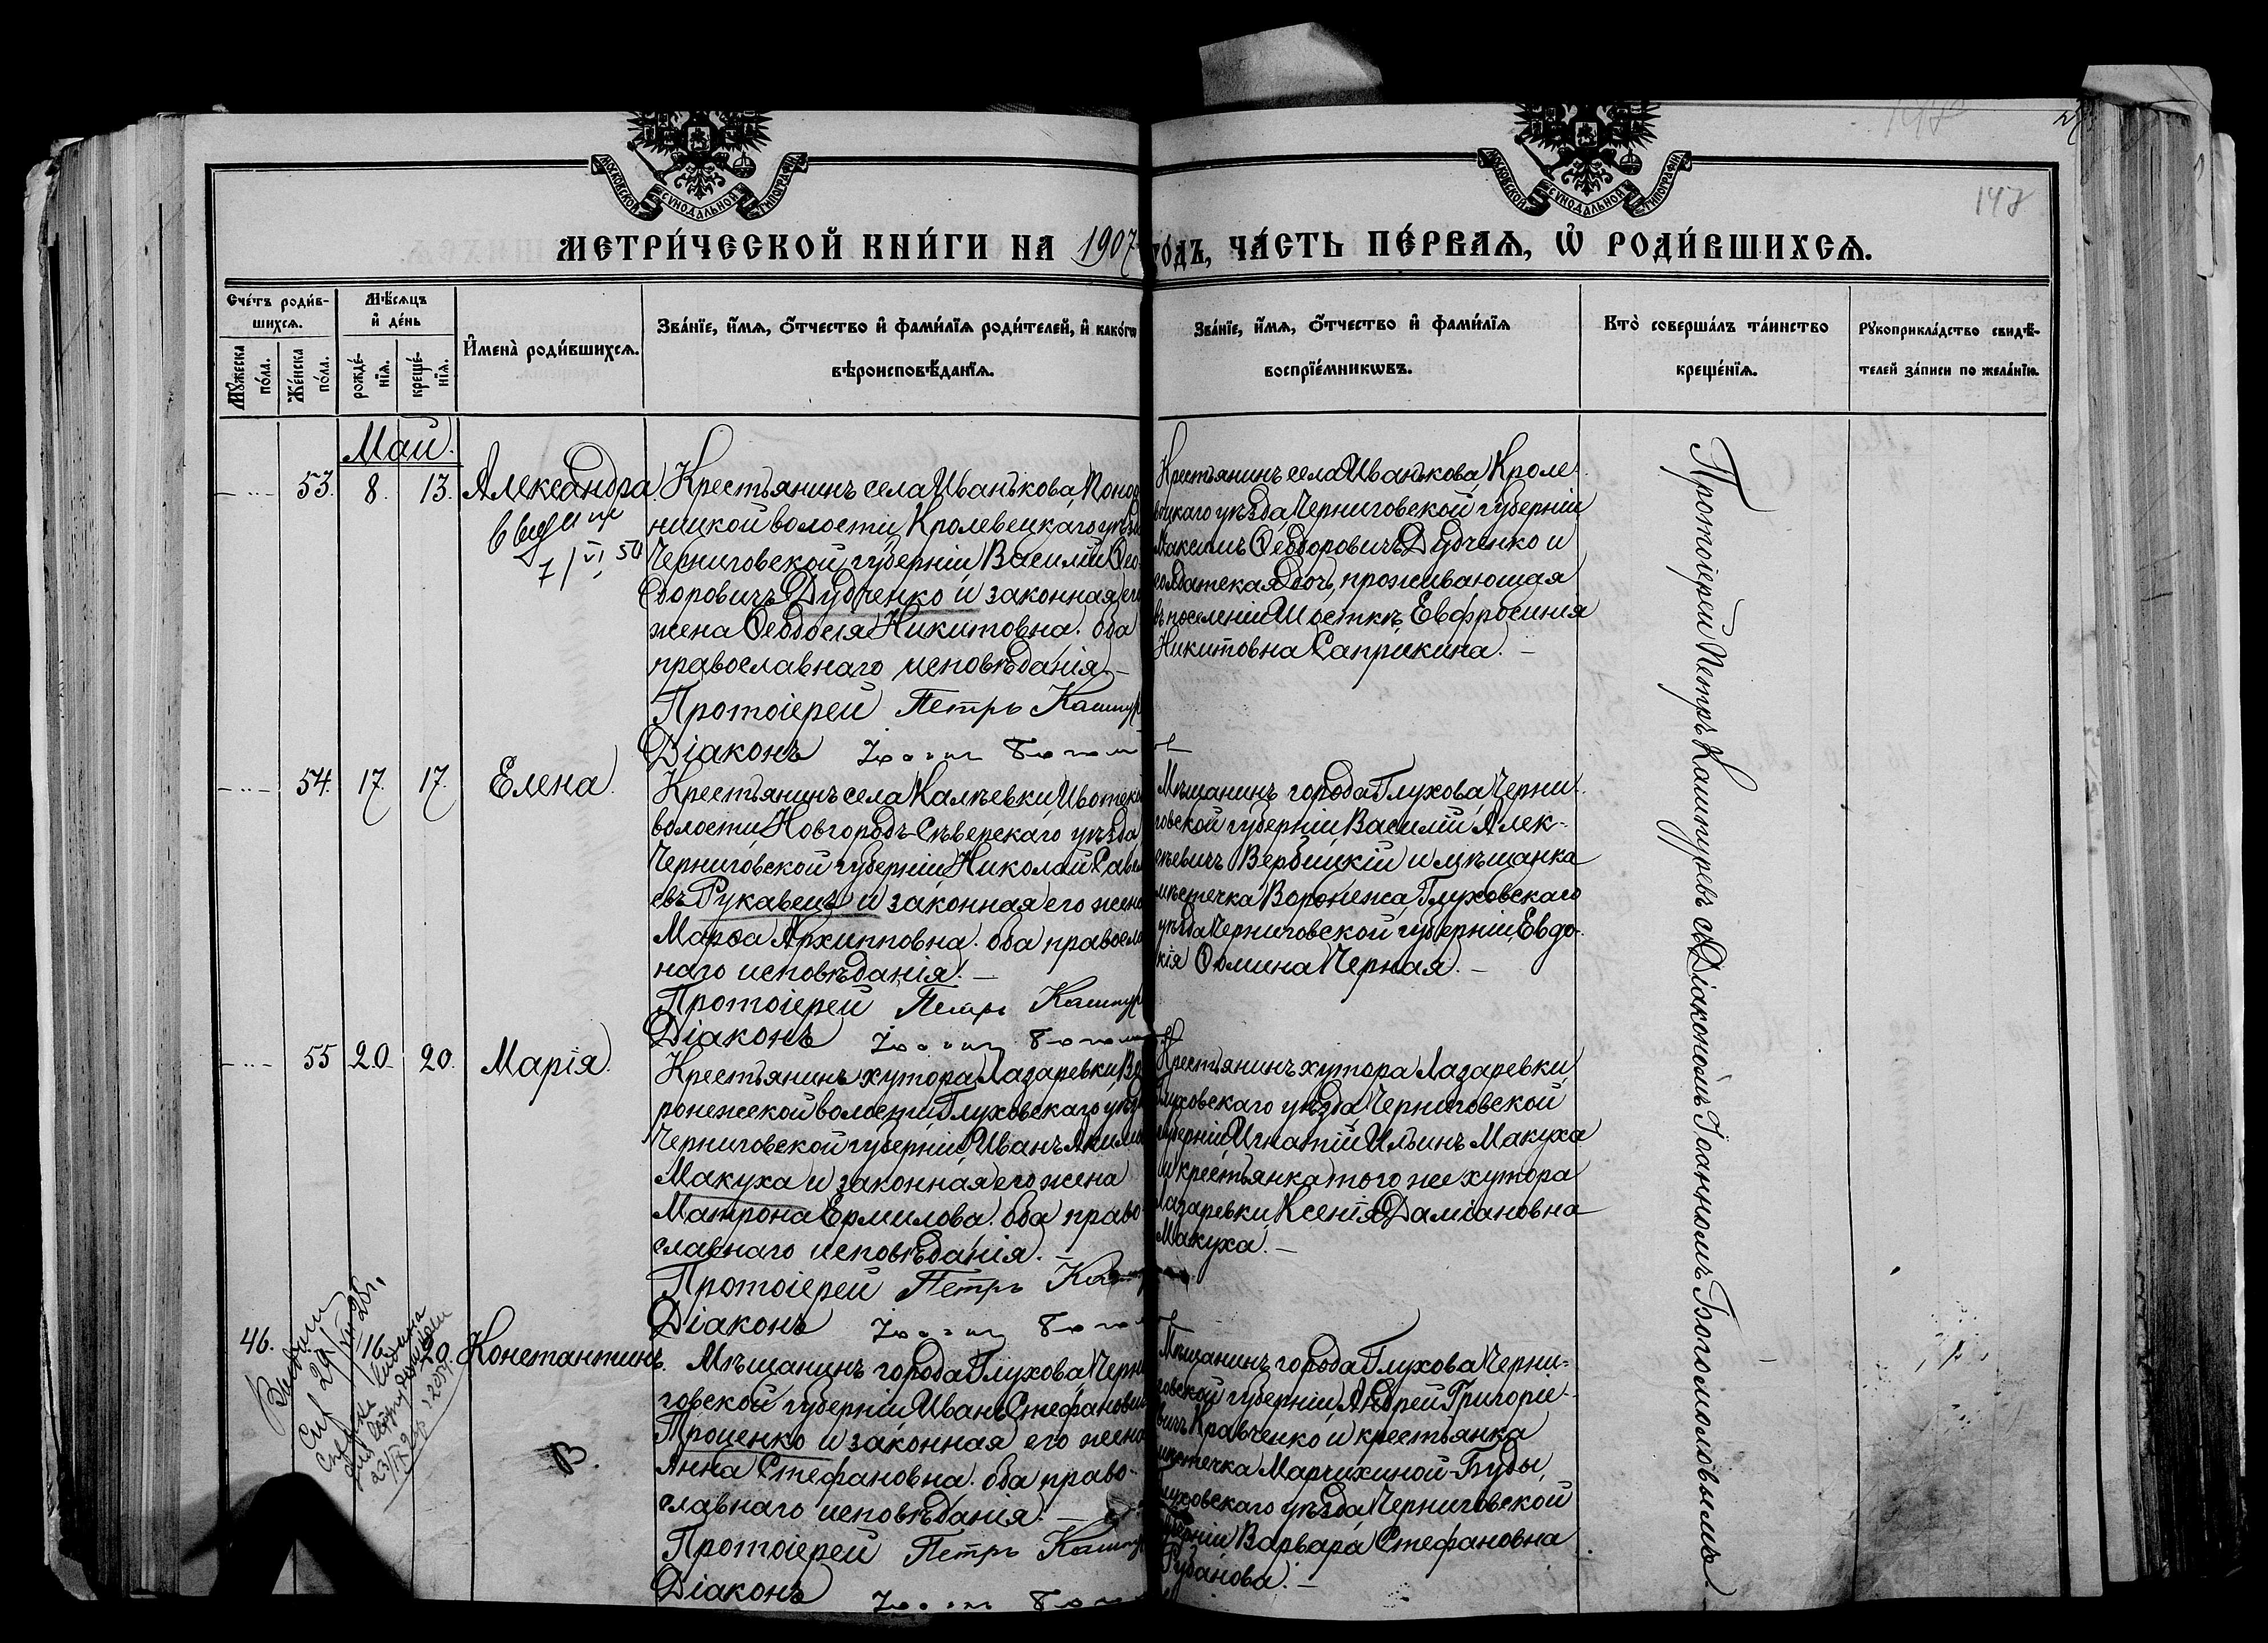 МОСКОВСКОЙ СѴНОДАЛЬНОЙ ТИПОГРАФІИ
МОСКОВСКОЙ СѴНОДАЛЬНОЙ ТИПОГРАФІИ
147
МЕТРИ́ЧЕСКОЙ КНИ́ГИ НА 1907 ГО́ДЪ, ЧА́СТЬ ПЕ́РВАѦ, Ѡ҆ РОДИ́ВШИХСѦ.
Сче́тъ роди́в-
шихсѧ.
Мꙋ́жеска по́ла.
Же́нска по́ла.
Мѣ́сѧцъ
и҆ де́нь
рожде́-
нїѧ.
креще́-
нїѧ.
И҆мена̀ роди́вшихсѧ.
Зва́нїе, и҆́мѧ, ѻ҆́тчество и҆ фами́лїѧ роди́телей, и҆ како́гѡ
вѣроисповѣ́данїѧ.
Зва́нїе, и҆́мѧ, ѻ҆́тчество и҆ фами́лїѧ
воспрїе́мникѡвъ.
Кто̀ соверша́лъ та́инство
креще́нїѧ.
Рꙋкоприкла́дство свидѣ́-
телей за́писи по жела́нїю.
Май.
53. 8. 13. Александра
7/VI 50
Крестьянинъ села Иванькова, Поно
ницкой волости, Кролевецкаго уѣз
Черниговской губерніи Василій Ѳео-
доровичъ Дубченко и законная его
жена Ѳеодосія Никитовна. оба
православнаго исповѣданія.
Протоіерей Петръ Кашпур
Діаконъ
Крестьянинъ села Иванькова, Кроле-
вецкаго уѣзда, Черниговской губерніи
Максимъ Ѳеодоровичъ Дубченко и
солдатская дочь, проживающая
въ поселеніи Шосткѣ, Евфросинія
Никитовна Саприкина.
54. 17. 17. Елена.
Крестьянинъ села Калѣевки, Ивотск
волости, Новгородъ-Сѣверскаго уѣзда
Черниговской губерніи, Николай Савел
евъ Рукавецъ и законная его жена
Марѳа Архипповна. оба правосла
наго исповѣданія.
Протоіерей Петръ Кашпур
Діаконъ
Мѣщанинъ города Глухова, Черни-
говской губерніи Василій Алек-
сѣевичъ Вербицкій и мѣщанка
мѣстечка Воронежа, Глуховскаго
уѣзда Черниговской губерніи, Евдо-
кія Ѳомина Черная.
55 20. 20. Марія.
Крестьянинъ хутора Лазаревки, Во
ронежской волости Глуховскаго уѣзд
Черниговской губерніи, Иванъ Аким
Макуха и законная его жена
Матрона Ермилова. оба право-
славнаго исповѣданія.
Протоіерей Петръ Каш
Діаконъ
Крестьянинъ хутора Лазаревки,
Глуховскаго уѣзда Черниговской
губерніи Игнатій Ильинъ Макуха
и крестьянка того же хутора
Лазаревки, Ксенія Даміановна
Макуха.
46. 16. 20. Константинъ.
В.
Мѣщанинъ города Глухова, Черни
говской губерніи, Иванъ Стефанович
Троценко и законная его жена
Анна Стефановна. оба право-
славнаго исповѣданія.
Протоіерей Петръ Кашпур
Діаконъ
Мѣщанинъ города Глухова Черни-
говской губерніи, Андрей Григорье-
вичъ Кравченко и крестьянка
мѣстечка Марчихиной-Буды,
Глуховскаго уѣзда, Черниговской
губерніи Варвара Стефановна
Рубанова.
Протоіерей Петръ Кашпуревъ съ Діакономъ Іоанномъ Богомоловымъ.